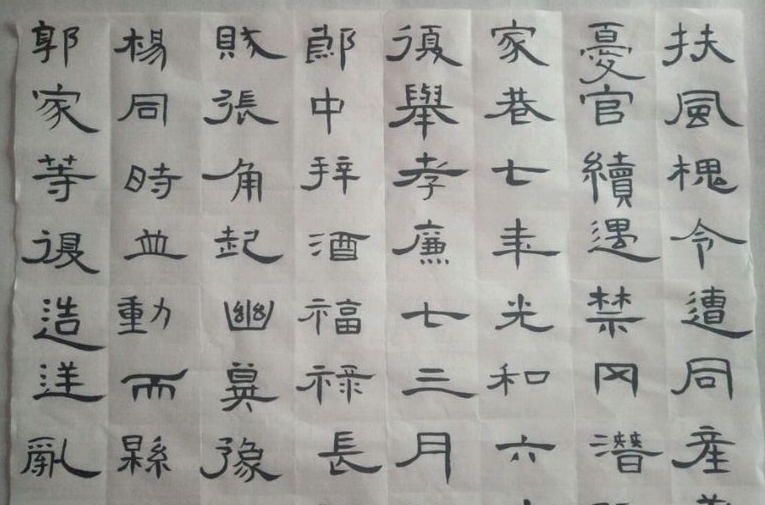 扶風槐令遭同産
憂官續遇禁冈潛
家巷七年光和六
復舉孝廉七三月
郎中拜酒福祿長
賊張角起幽冀豫
楊同時並動而縣
郭家等復造逆亂